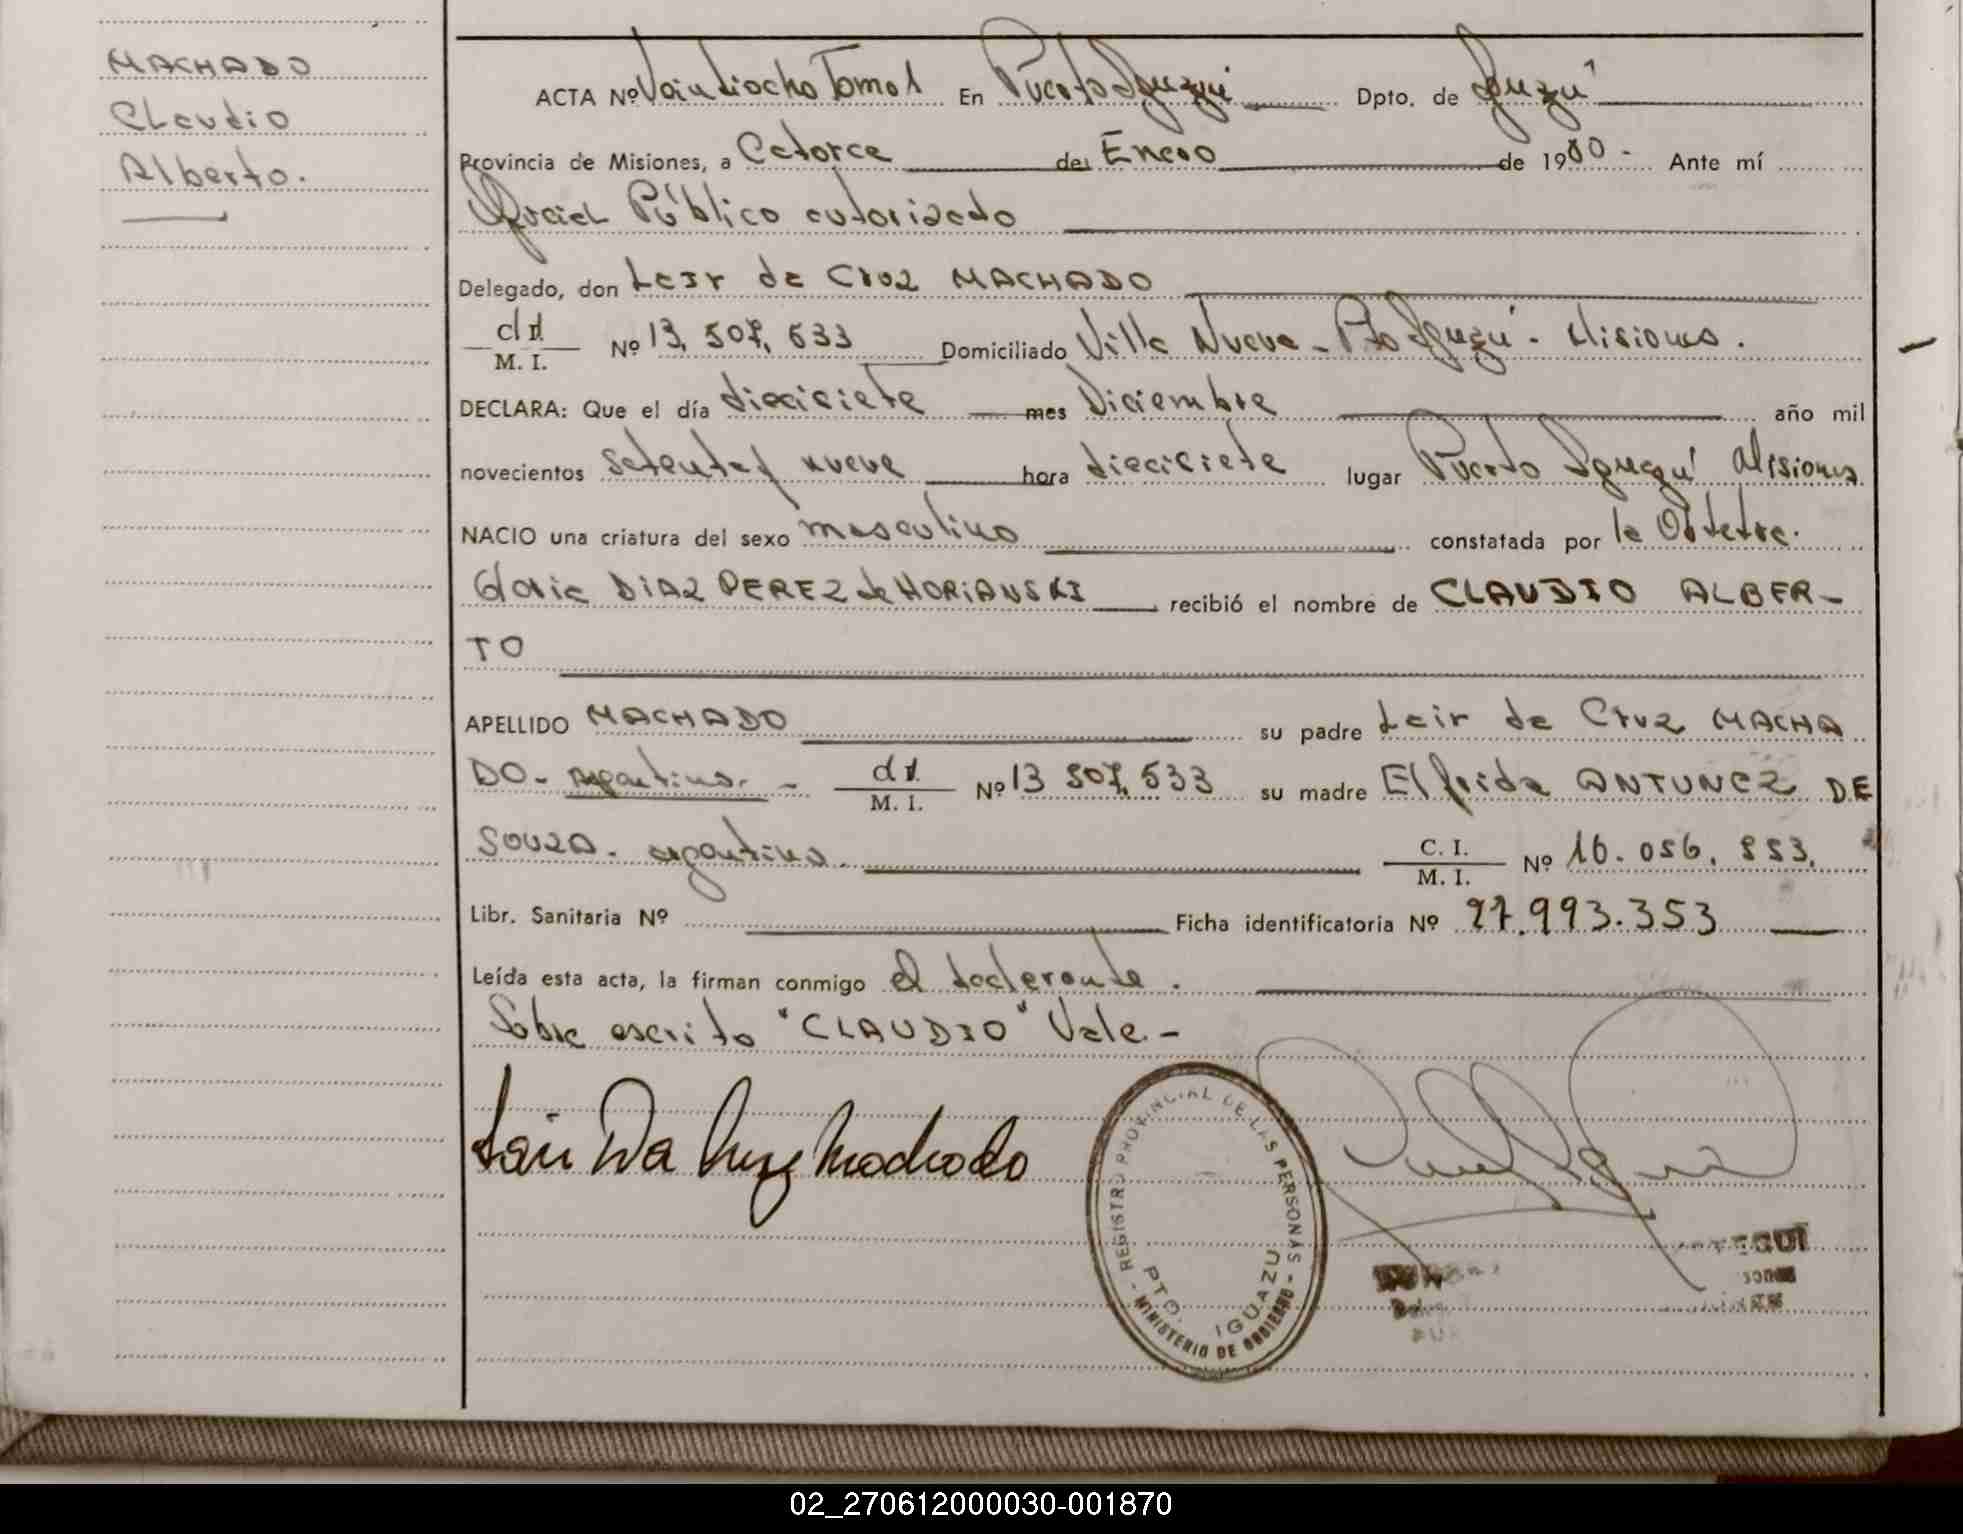 MACHADO
Claudio
Alberto.
ACTA Nº Veintiocho Tomo 1 En Puerto Iguazú Dpto. de Iguazú
Provincia de Misiones, a Catorce de Enero de 1980 - Ante mí
Oficial Público autorizado
Delegado, don Leir da Cruz MACHADO
M. I. Nº 13,507,533 Domiciliado Villa Nueva - Pto Iguazú - Misiones.
DECLARA: Que el día diecisiete mes Diciembre año mil
novecientos setenta y nueve hora diecisiete lugar Puerto Iguazú Misiones
NACIO una criatura del sexo masculino constatada por la Obtetra.
Gloria DIAZ PEREZ de MORIANSKI recibió el nombre de CLAUDIO ALBER-
TO
APELLIDO MACHADO su padre Leir da Cruz MACHA
DO - argentino. - M. I. Nº 13 507,533 su madre Elfrida ANTUNEZ DE
SOUZA - argentina. C. I. M. I. Nº 16.056.853.
Libr. Sanitaria Nº Ficha identificatoria Nº 27.993.353
Leída esta acta, la firman conmigo el declarante.
Sobre escrito "CLAUDIO" Vale. -
Leir Da Cruz Machado
- REGISTRO PROVINCIAL DE LAS PERSONAS -
PTO. IGUAZU
MINISTERIO DE GOBIERNO
02_270612000030-001870